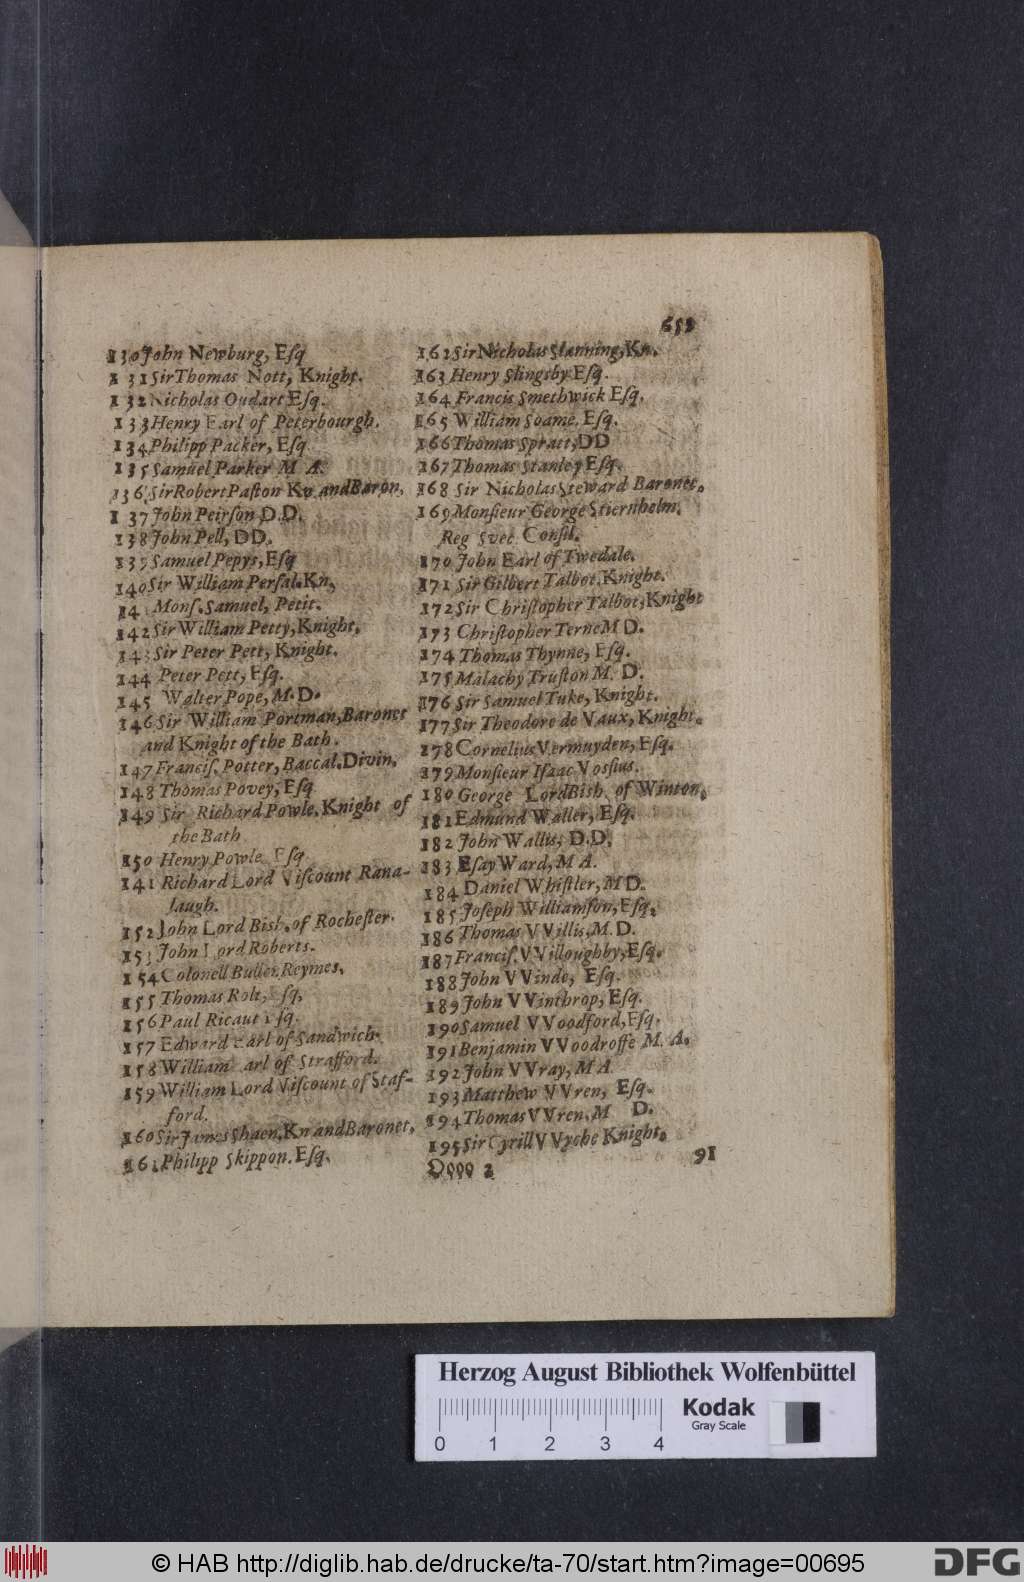 658
130 John Newburg, Eſq
131 Sir Thomas Nott, Knight.
132 Nicholas Oudart Eſq.
133 Henry Earl of Peterbourgh.
134 Philipp Packer, Eſq
135 Samuel Parker M A.
136 Sir Robert Paſton Kn and Baron,
137 John Peirſon D.D.
138 John Pell, DD.
139 Samuel Pepys, Eſq
140 Sir William Perſal. Kn,
14 Monſ. Samuel, Petit.
142 Sir William Petty, Knight,
143 Sir Peter Pett, Knight.
144 Peter Pett, Eſq.
145 Walter Pope, M.D.
146 Sir William Portman, Baronet
and Knight of the Bath.
147 Franciſ. Potter, Baccal. Divin.
148 Thomas Povey, Eſq
149 Sir Richard Powle, Knight of
the Bath
150 Henry Powle Eſq
141 Richard Lord Viſcount Rana-
laugh.
152 John Lord Bish. of Rocheſter.
153 John Lord Roberts.
154 Colonell Buller Reymes,
155 Thomas Rolt, Eſq,
156 Paul Ricaut Eſq.
157 Edward Earl of Sandwich.
158 William Earl of Strafford.
159 William Lord Viſcount of Staf-
ford.
160 Sir James Shaen, Kn and Baronet,
161 Philipp Skippon. Eſq.
162 Sir Nicholas Slanning, Kn.
163 Henry Slingsby Eſq.
164 Francis Smethwick Eſq,
165 William Soame, Eſq.
166 Thomas Spratt, DD
167 Thomas Stanley Eſq.
168 Sir Nicholas Steward Baronet.
169 Monſieur George Stiernhelm.
Reg Svec Conſil.
170 John Earl of Twedale.
171 Sir Gilbert Talbot, Knight.
172 Sir Chriſtopher Talbot, Knight
173 Chriſtopher Terne M D.
174 Thomas Thynne, Eſq.
175 Malachy Truſton M. D.
176 Sir Samuel Tuke, Knight.
177 Sir Theodore de Vaux, Knight.
178 Cornelius Vermuyden, Eſq.
179 Monſieur Iſaac Voſſius.
180 George Lord Bish. of Winton.
181 Edmund Waller, Eſq.
182 John Wallis, D.D.
183 Eſay Ward, M A.
184 Daniel Whiſtler, M D.
185 Joſeph Williamſon, Eſq.
186 Thomas VVillis, M. D.
187 Franciſ. VVilloughby, Eſq.
188 John VVinde, Eſq.
189 John VVinthrop, Eſq.
190 Samuel VVoodford, Eſq.
191 Benjamin VVoodroffe M. A.
192 John VVray, M A
193 Matthew VVren, Eſq.
194 Thomas VVren, M D.
195 Sir Cyrill VVyche Knight.
Qqqq 2
91
Herzog August Bibliothek Wolfenbüttel
Kodak
Gray Scale
0 1 2 3 4
© HAB http://diglib.hab.de/drucke/ta-70/start.htm?image=00695
DFG